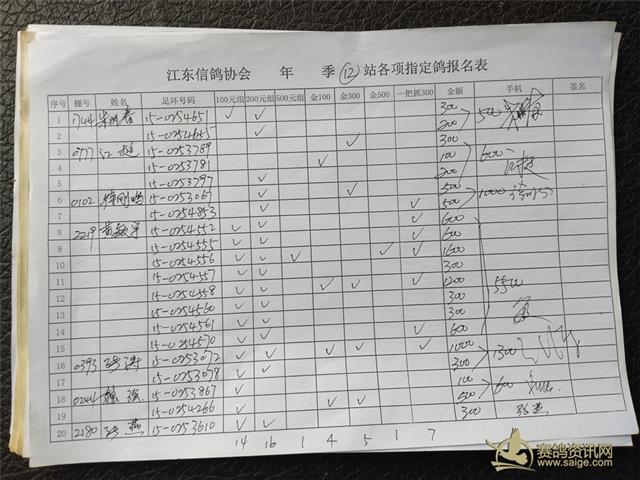 江东信鸽协会 年 季 12 站各项指定鸽报名表
序号 棚号 姓名 足环号码 100元组 200元组 500元组 金100 金300 金500 一把抓300 金额 手机 签名
1 15-0254651 ✓ ✓ 300
2 15-0254645 ✓ 200 500
3 0777 江挺 15-0253789 ✓ 300
4 15-0253781 ✓ 100 600
5 15-0253797 ✓ 200
6 0102 15-0253061 ✓ ✓ 500
7 15-0254853 ✓ ✓ 500 1000
8 2219 15-0254552 ✓ ✓ ✓ 600
9 15-0254555 ✓ ✓ ✓ 600
10 15-0254556 ✓ ✓ ✓ ✓ ✓ 1600
11 15-0254557 ✓ ✓ 300
12 15-0254558 ✓ ✓ ✓ ✓ ✓ 1200
13 15-0254560 ✓ ✓ 300
14 15-0254561 ✓ ✓ 300
15 15-0254570 ✓ ✓ ✓ 600
16 0393 15-0253072 ✓ ✓ ✓ ✓ ✓ 1000
17 15-0253078 ✓ ✓ 300 1300
18 0244 15-0253867 ✓ 100
19 15-0254266 ✓ ✓ ✓ 500 600
20 2180 15-0253610 ✓ ✓ 300
14 16 1 4 5 1 7
赛鸽资讯网
www.saige.com